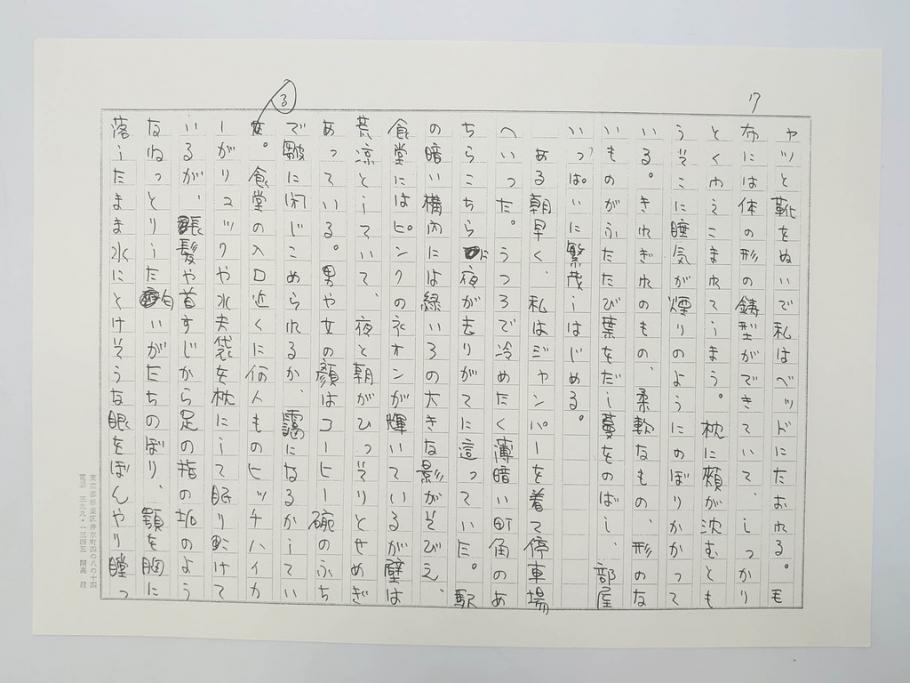 7
ャツと靴をぬいで私はベッドにたおれる。毛
布には体の形の鋳型ができていて、しっかり
とくわえこまれてしまう。枕に頬が沈むとも
うそこに睡気が煙りのようにのぼりかかって
いる。きれぎれのもの、柔軟なもの、形のな
いものがふたたび葉をだし蔓をのばし、部屋
いっぱいに繁茂しはじめる。
ある朝早く、私はジャンパーを着て停車場
へいった。うつろで冷めたく薄暗い町角のあ
ちらこちらに夜が去りがてに這っていた。駅
の暗い構内には緑いろの大きな影がそびえ、
食堂にはピンクのネオンが輝いているが壁は
荒涼としていて、夜と朝がひっそりとせめぎ
あっている。男や女の顔はコーヒー碗のふち
で皺に閉じこめられるか、靄になるかしてい
3
た。食堂の入口近くに何人ものヒッチハイカ
ーがリュックや水夫袋を枕にして眠り転けて
いるが、髪や首すじから足の指の垢のよう
なねっとりした匂いがたちのぼり、顎を胸に
落したまま水にとけそうな眼をぼんやり瞠っ
東京都杉並区井草町四の八の十四
電話 三九九・一三四五 開高 健